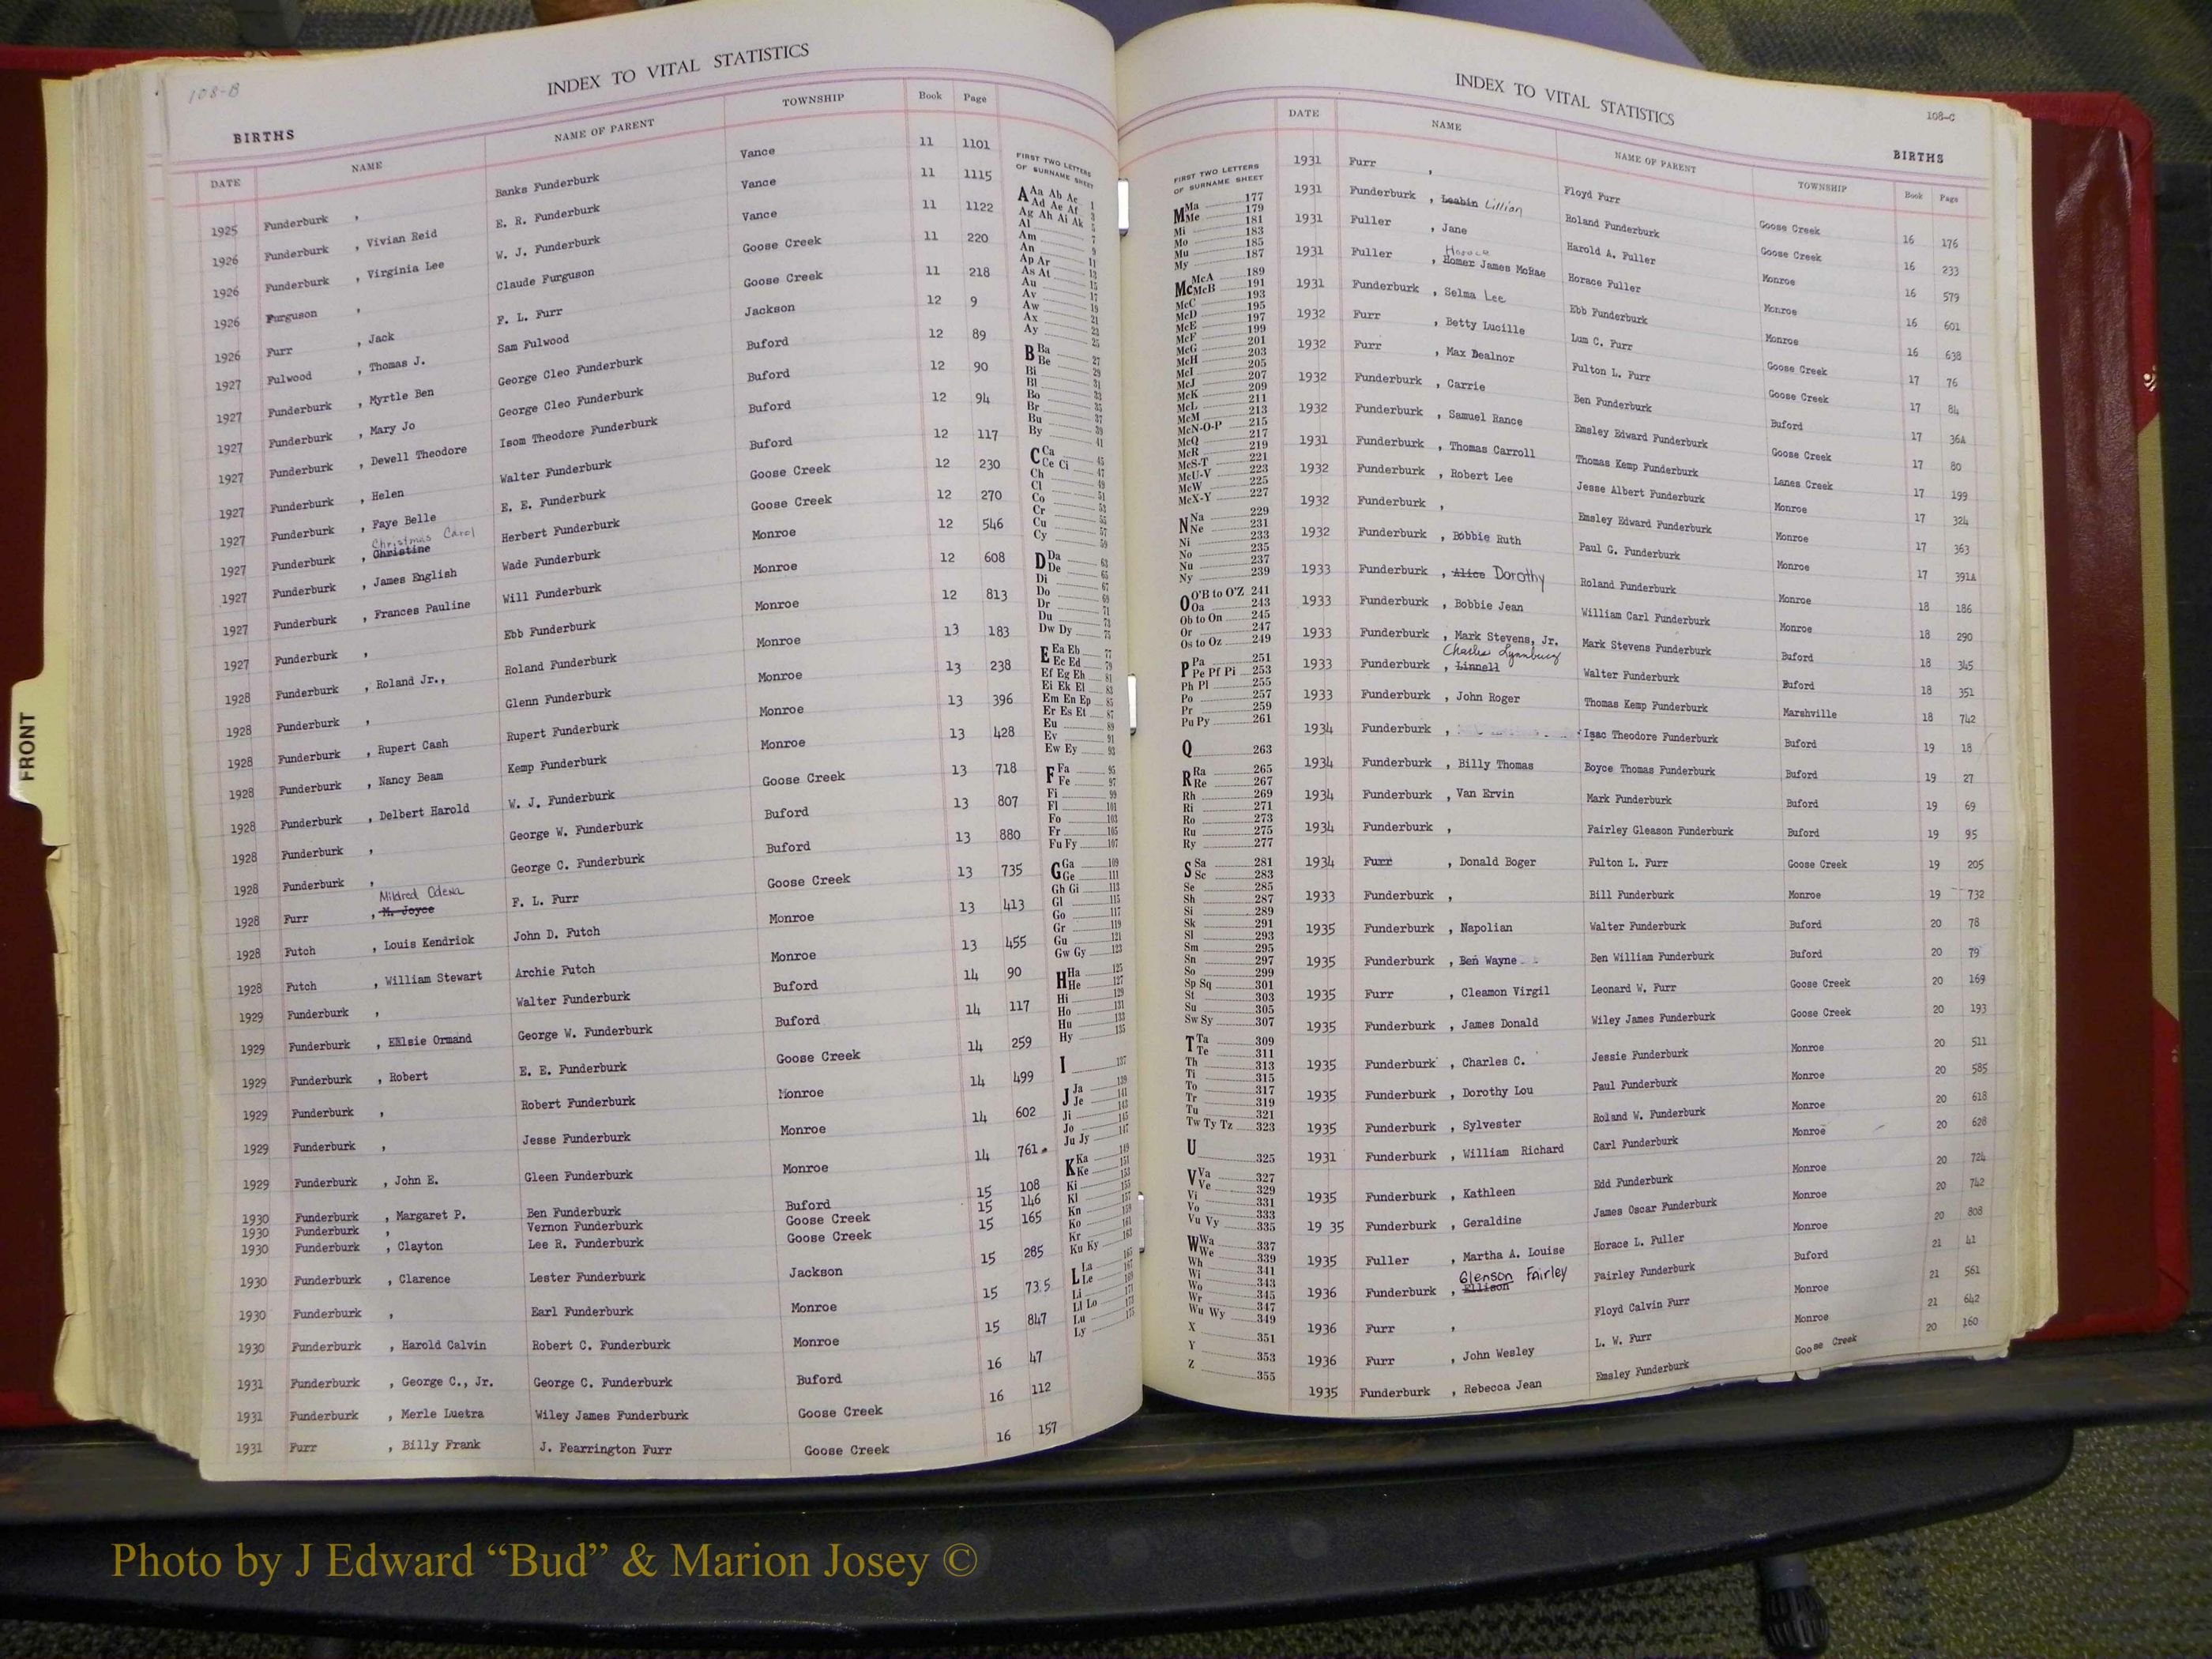 108-B
INDEX TO VITAL STATISTICS
BIRTHS
DATE NAME NAME OF PARENT TOWNSHIP Book Page
1925 Funderburk , Banks Funderburk Vance 11 1101
1926 Funderburk , Vivian Reid E. R. Funderburk Vance 11 1115
1926 Funderburk , Virginia Lee W. J. Funderburk Vance 11 1122
1926 Furguson , Claude Furguson Goose Creek 11 220
1926 Furr , Jack F. L. Furr Goose Creek 11 218
1927 Fulwood , Thomas J. Sam Fulwood Jackson 12 9
1927 Funderburk , Myrtle Ben George Cleo Funderburk Buford 12 89
1927 Funderburk , Mary Jo George Cleo Funderburk Buford 12 90
1927 Funderburk , Dewell Theodore Isom Theodore Funderburk Buford 12 94
1927 Funderburk , Helen Walter Funderburk Buford 12 117
1927 Funderburk , Faye Belle E. E. Funderburk Goose Creek 12 230
Christmas Carol
1927 Funderburk , Christine Herbert Funderburk Goose Creek 12 270
1927 Funderburk , James English Wade Funderburk Monroe 12 546
1927 Funderburk , Frances Pauline Will Funderburk Monroe 12 608
1927 Funderburk , Ebb Funderburk Monroe 12 813
1928 Funderburk , Roland Jr., Roland Funderburk Monroe 13 183
1928 Funderburk , Glenn Funderburk Monroe 13 238
1928 Funderburk , Rupert Cash Rupert Funderburk Monroe 13 396
1928 Funderburk , Nancy Beam Kemp Funderburk Monroe 13 428
1928 Funderburk , Delbert Harold W. J. Funderburk Goose Creek 13 718
1928 Funderburk , George W. Funderburk Buford 13 807
1928 Funderburk , George C. Funderburk Buford 13 880
Mildred Odena
1928 Furr , M. Joyce F. L. Furr Goose Creek 13 735
1928 Futch , Louis Kendrick John D. Futch Monroe 13 413
1928 Futch , William Stewart Archie Futch Monroe 13 455
1929 Funderburk , Walter Funderburk Buford 14 90
1929 Funderburk , Elsie Ormand George W. Funderburk Buford 14 117
1929 Funderburk , Robert E. E. Funderburk Goose Creek 14 259
1929 Funderburk , Robert Funderburk Monroe 14 499
1929 Funderburk , Jesse Funderburk Monroe 14 602
1929 Funderburk , John E. Gleen Funderburk Monroe 14 761
1930 Funderburk , Margaret P. Ben Funderburk Buford 15 108
1930 Funderburk , Vernon Funderburk Goose Creek 15 146
1930 Funderburk , Clayton Lee R. Funderburk Goose Creek 15 165
1930 Funderburk , Clarence Lester Funderburk Jackson 15 285
1930 Funderburk , Earl Funderburk Monroe 15 735
1930 Funderburk , Harold Calvin Robert C. Funderburk Monroe 15 847
1931 Funderburk , George C., Jr. George C. Funderburk Buford 16 47
1931 Funderburk , Merle Luetra Wiley James Funderburk Goose Creek 16 112
1931 Furr , Billy Frank J. Fearrington Furr Goose Creek 16 157
FIRST TWO LETTERS
OF SURNAME SHEET
A Aa Ab Ac 1
Ad Ae Af 3
Ag Ah Ai Ak 5
Al 7
Am 9
An 11
Ap Ar 13
As At 15
Au 17
Av 19
Aw 21
Ax 23
Ay 25
B Ba 27
Be 29
Bi 31
Bl 33
Bo 35
Br 37
Bu 39
By 41
C Ca 45
Ce Ci 47
Ch 49
Cl 51
Co 53
Cr 55
Cu 57
Cy 59
D Da 63
De 65
Di 67
Do 69
Dr 71
Du 73
Dw Dy 75
E Ea Eb 77
Ec Ed 79
Ef Eg Eh 81
Ei Ek El 83
Em En Ep 85
Er Es Et 87
Eu 89
Ev 91
Ew Ey 93
F Fa 95
Fe 97
Fi 99
Fl 101
Fo 103
Fr 105
Fu Fy 107
G Ga 109
Ge 111
Gh Gi 113
Gl 115
Go 117
Gr 119
Gu 121
Gw Gy 123
H Ha 125
He 127
Hi 129
Ho 131
Hu 133
Hy 135
I 137
J Ja 139
Je 141
Ji 143
Jo 145
Ju Jy 147
K Ka 149
Ke 151
Ki 153
Kl 157
Kn 159
Ko 161
Kr 163
Ku Ky
L La 165
Le 167
Li 169
Ll Lo 171
Lu 173
Ly 175
FRONT
INDEX TO VITAL STATISTICS
108-C
BIRTHS
FIRST TWO LETTERS
OF SURNAME SHEET
M Ma 177
Me 179
Mi 181
Mo 183
Mu 185
My 187
Mc McA 189
McB 191
McC 193
McD 195
McE 197
McF 199
McG 201
McH 203
McI 205
McJ 207
McK 209
McL 211
McM 213
McN-O-P 215
McQ 217
McR 219
McS-T 221
McU-V 223
McW 225
McX-Y 227
N Na 229
Ne 231
Ni 233
No 235
Nu 237
Ny 239
O O'B to O'Z 241
Oa 243
Ob to On 245
Or 247
Os to Oz 249
P Pa 251
Pe Pf Pi 253
Ph Pl 255
Po 257
Pr 259
Pu Py 261
Q 263
R Ra 265
Re 267
Rh 269
Ri 271
Ro 273
Ru 275
Ry 277
S Sa 281
Sc 283
Se 285
Sh 287
Si 289
Sk 291
Sl 293
Sm 295
Sn 297
So 299
Sp Sq 301
St 303
Su 305
Sw Sy 307
T Ta 309
Te 311
Th 313
Ti 315
To 317
Tr 319
Tu 321
Tw Ty Tz 323
U 325
V Va 327
Ve 329
Vi 331
Vo 333
Vu Vy 335
W Wa 337
We 339
Wh 341
Wi 343
Wo 345
Wr 347
Wu Wy 349
X 351
Y 353
Z 355
DATE NAME NAME OF PARENT TOWNSHIP Book Page
1931 Furr , Floyd Furr Goose Creek 16 176
1931 Funderburk , Leabin Lillian Roland Funderburk Goose Creek 16 233
1931 Fuller , Jane Harold A. Fuller Monroe 16 579
Horace
1931 Fuller , Homer James McRae Horace Fuller Monroe 16 601
1931 Funderburk , Selma Lee Ebb Funderburk Monroe 16 638
1932 Furr , Betty Lucille Lum C. Furr Goose Creek 17 76
1932 Furr , Max Dealnor Fulton L. Furr Goose Creek 17 84
1932 Funderburk , Carrie Ben Funderburk Buford 17 36A
1932 Funderburk , Samuel Rance Emsley Edward Funderburk Goose Creek 17 80
1931 Funderburk , Thomas Carroll Thomas Kemp Funderburk Lanes Creek 17 199
1932 Funderburk , Robert Lee Jesse Albert Funderburk Monroe 17 324
1932 Funderburk , Emsley Edward Funderburk Monroe 17 363
1932 Funderburk , Bobbie Ruth Paul G. Funderburk Monroe 17 391A
1933 Funderburk , Alice Dorothy Roland Funderburk Monroe 18 186
1933 Funderburk , Bobbie Jean William Carl Funderburk Monroe 18 290
1933 Funderburk , Mark Stevens, Jr. Mark Stevens Funderburk Buford 18 345
Charles Lynnburg
1933 Funderburk , Linnell Walter Funderburk Buford 18 351
1933 Funderburk , John Roger Thomas Kemp Funderburk Marshville 18 742
1934 Funderburk , Isac Theodore Funderburk Buford 19 18
1934 Funderburk , Billy Thomas Boyce Thomas Funderburk Buford 19 27
1934 Funderburk , Van Ervin Mark Funderburk Buford 19 69
1934 Funderburk , Fairley Gleason Funderburk Buford 19 95
1934 Furr , Donald Boger Fulton L. Furr Goose Creek 19 205
1933 Funderburk , Bill Funderburk Monroe 19 732
1935 Funderburk , Napolian Walter Funderburk Buford 20 78
1935 Funderburk , Ben Wayne Ben William Funderburk Buford 20 79
1935 Furr , Cleamon Virgil Leonard W. Furr Goose Creek 20 169
1935 Funderburk , James Donald Wiley James Funderburk Goose Creek 20 193
1935 Funderburk , Charles C. Jessie Funderburk Monroe 20 511
1935 Funderburk , Dorothy Lou Paul Funderburk Monroe 20 585
1935 Funderburk , Sylvester Roland W. Funderburk Monroe 20 618
1931 Funderburk , William Richard Carl Funderburk Monroe 20 628
1935 Funderburk , Kathleen Edd Funderburk Monroe 20 724
19 35 Funderburk , Geraldine James Oscar Funderburk Monroe 20 742
1935 Fuller , Martha A. Louise Horace L. Fuller Monroe 20 808
Glenson Fairley
1936 Funderburk , Ellison Fairley Funderburk Buford 21 41
1936 Furr , Floyd Calvin Furr Monroe 21 561
1936 Furr , John Wesley L. W. Furr Monroe 21 642
1935 Funderburk , Rebecca Jean Emsley Funderburk Goose Creek 20 160
Photo by J Edward “Bud” & Marion Josey ©